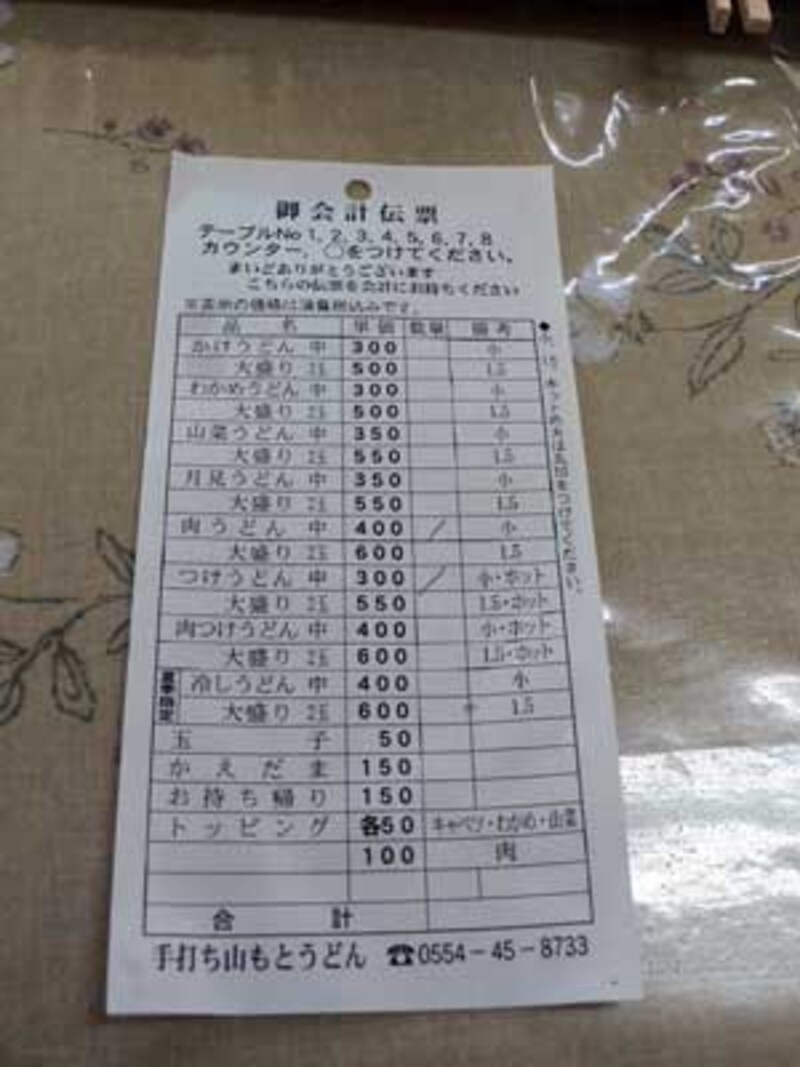 御会計伝票
テーブルNo 1, 2, 3, 4, 5, 6, 7, 8
カウンター, ○をつけてください。
まいどありがとうございます
こちらの伝票を会計にお持ちください
の価格は消費税込みです。
品名 単価 数量 備考
かけうどん 中 300 小
大盛り 2玉 500 1.5
わかめうどん 中 300 小
大盛り 2玉 500 1.5
山菜うどん 中 350 小
大盛り 2玉 550 1.5
月見うどん 中 350 小
大盛り 2玉 550 1.5
肉うどん 中 400 / 小
大盛り 2玉 600 1.5
つけうどん 中 300 / 小・ホット
大盛り 2玉 550 1.5・ホット
肉つけうどん 中 400 小・ホット
大盛り 2玉 600 1.5・ホット
夏季限定
冷しうどん 中 400 小
大盛り 2玉 600 1.5
玉子 50
かえだま 150
お持ち帰り 150
トッピング 各50 キャベツ・わかめ・山菜
100 肉
合計
手打ち山もとうどん ☎0554-45-8733
●小, 1.5, ホットの方は丸印をつけてください。